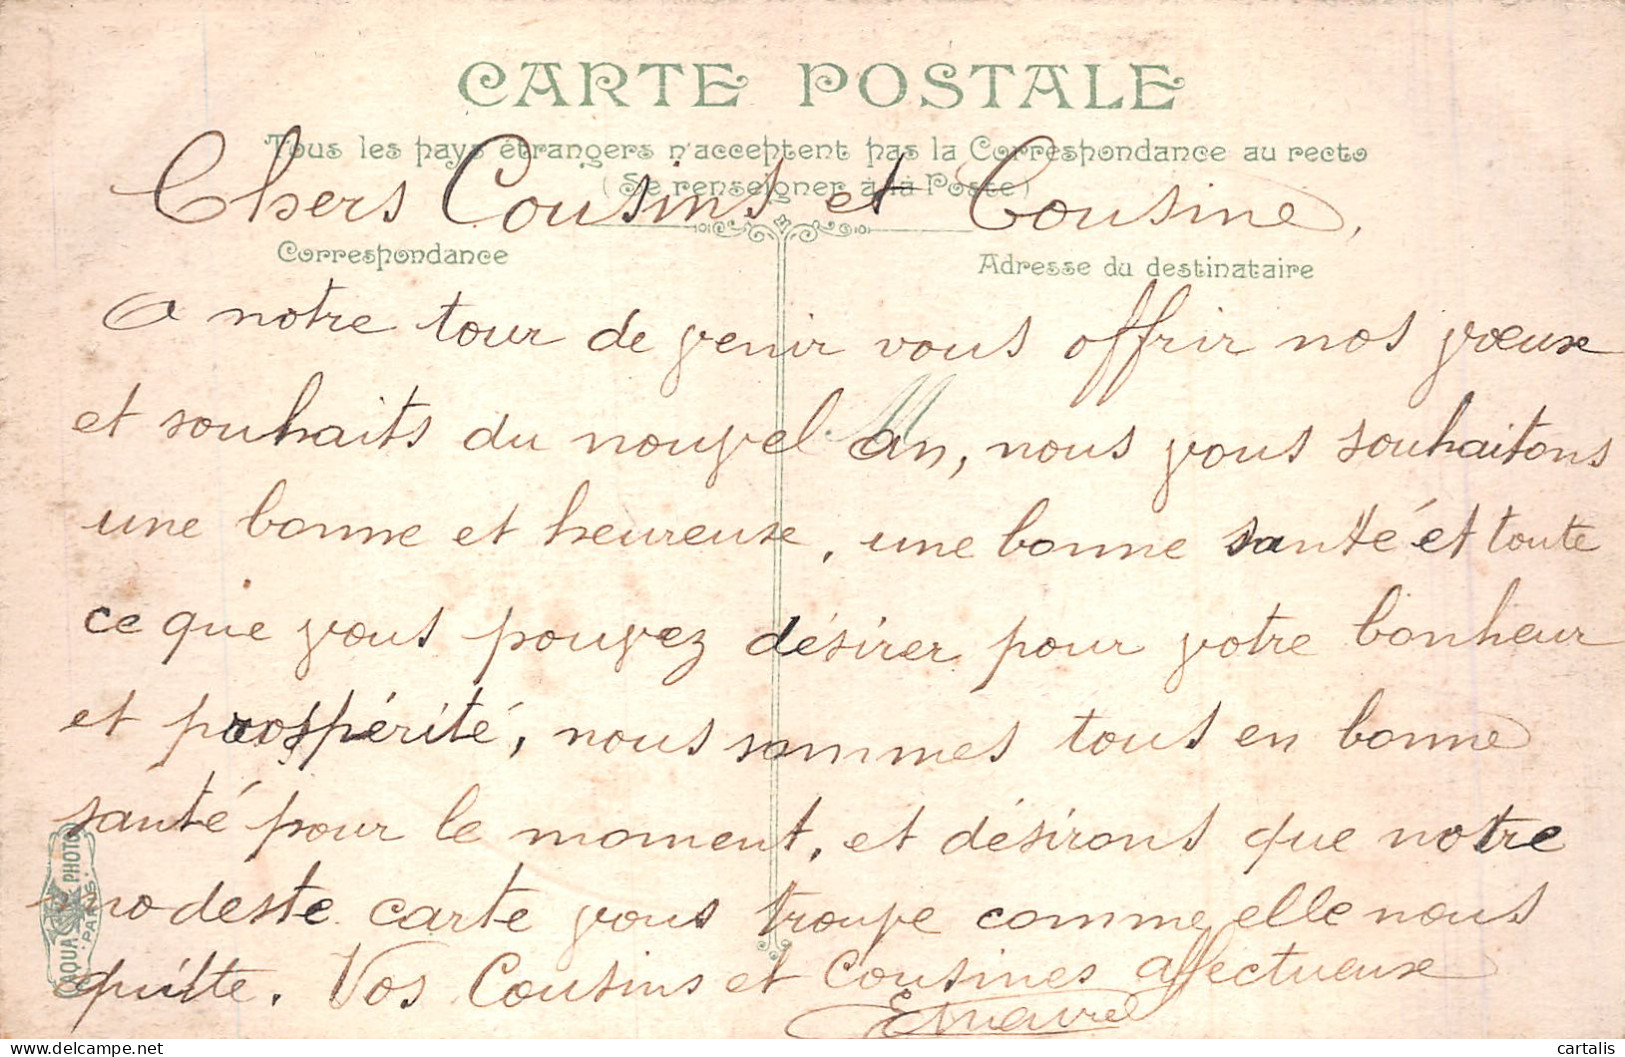 CARTE POSTALE
Tous les pays étrangers n'acceptent pas la Correspondance au recto
(Se renseigner à la Poste)
Chers Cousins et Cousine,
Correspondance
Adresse du destinataire
A notre tour de venir vous offrir nos vœux
et souhaits du nouvel an, nous vous souhaitons
une bonne et heureuse, une bonne santé et toute
ce que vous pouvez désirer pour votre bonheur
et prospérité, nous sommes tous en bonne
santé pour le moment, et désirons que notre
modeste carte vous trouve comme elle nous
quitte. Vos Cousins et Cousines affectueux
AQUA PHOTO
PARIS
delcampe.net
cartalis